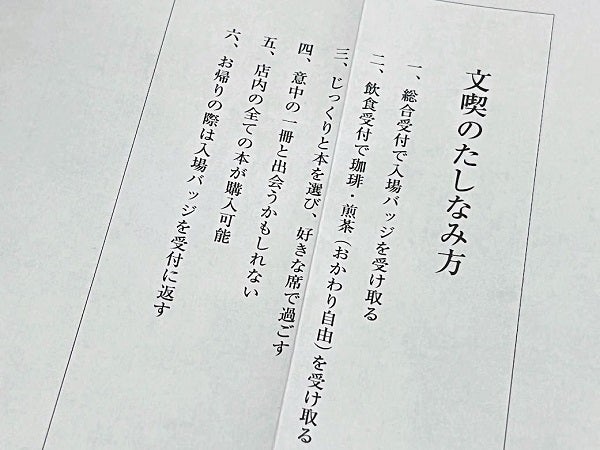 文喫のたしなみ方
一、総合受付で入場バッジを受け取る
二、飲食受付で珈琲・煎茶(おかわり自由)を受け取る
三、じっくりと本を選び、好きな席で過ごす
四、意中の一冊と出会うかもしれない
五、店内の全ての本が購入可能
六、お帰りの際は入場バッジを受付に返す